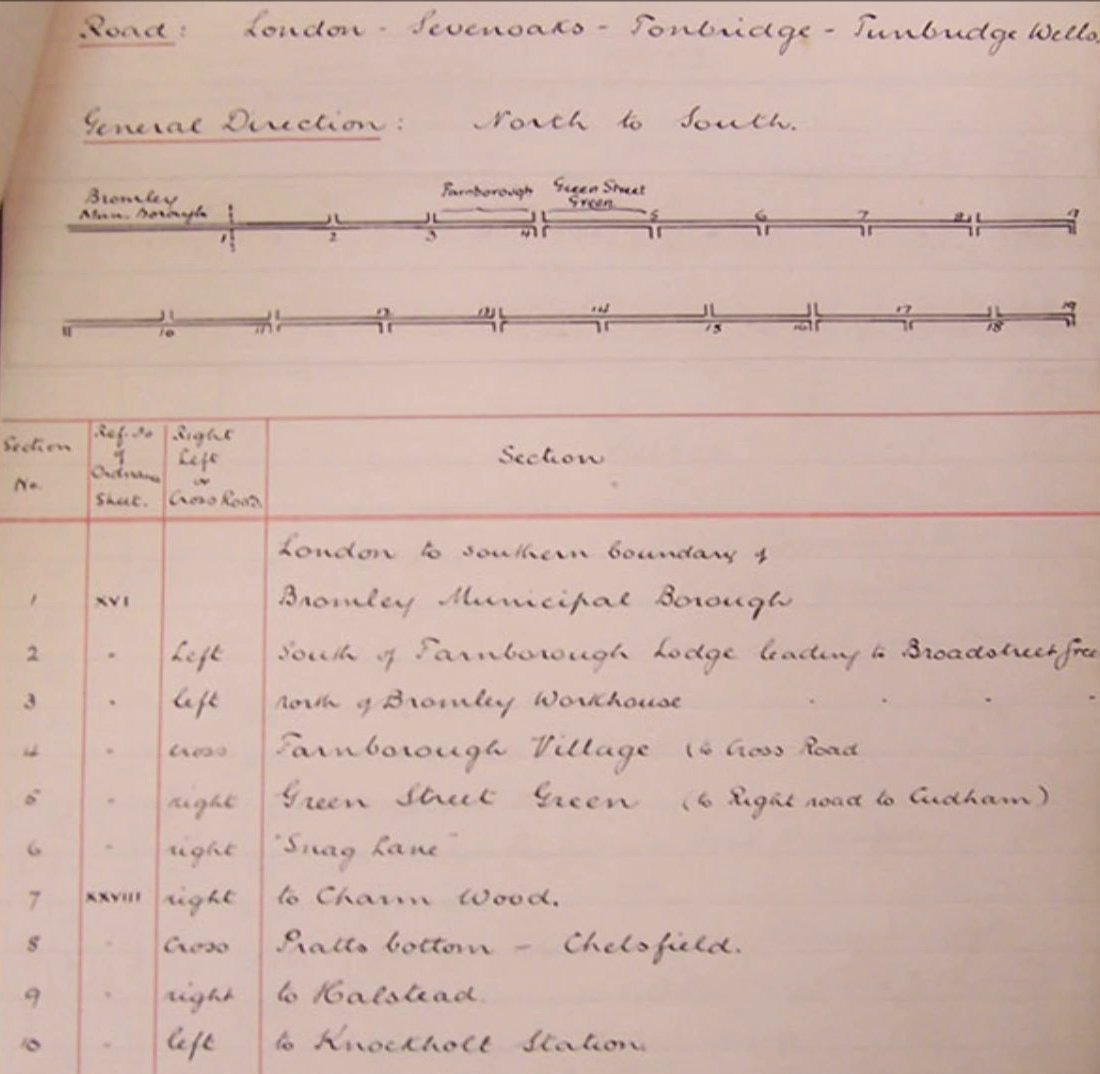 Road: London - Sevenoaks - Tonbridge - Tunbridge Wells.
General Direction: North to South.
Bromley Farnborough Green Street
Mun. Borough Green
1 2 3 4 5 6 7 8 9
10 11 12 13 14 15 16 17 18 19
Section No. Ref. to Ordnance Sheet. Right Left or Cross Road. Section
London to southern boundary of
1 XVI Bromley Municipal Borough
2 " Left South of Farnborough Lodge leading to Broadstreet Gree
3 " left north of Bromley Workhouse " " " "
4 " cross Farnborough Village (to Cross Road
5 " right Green Street Green (to Right road to Cudham)
6 " right "Snag Lane"
7 XXVIII right to Charm Wood.
8 " Cross Pratts bottom - Chelsfield.
9 " right to Halstead.
10 " left to Knockholt Station.